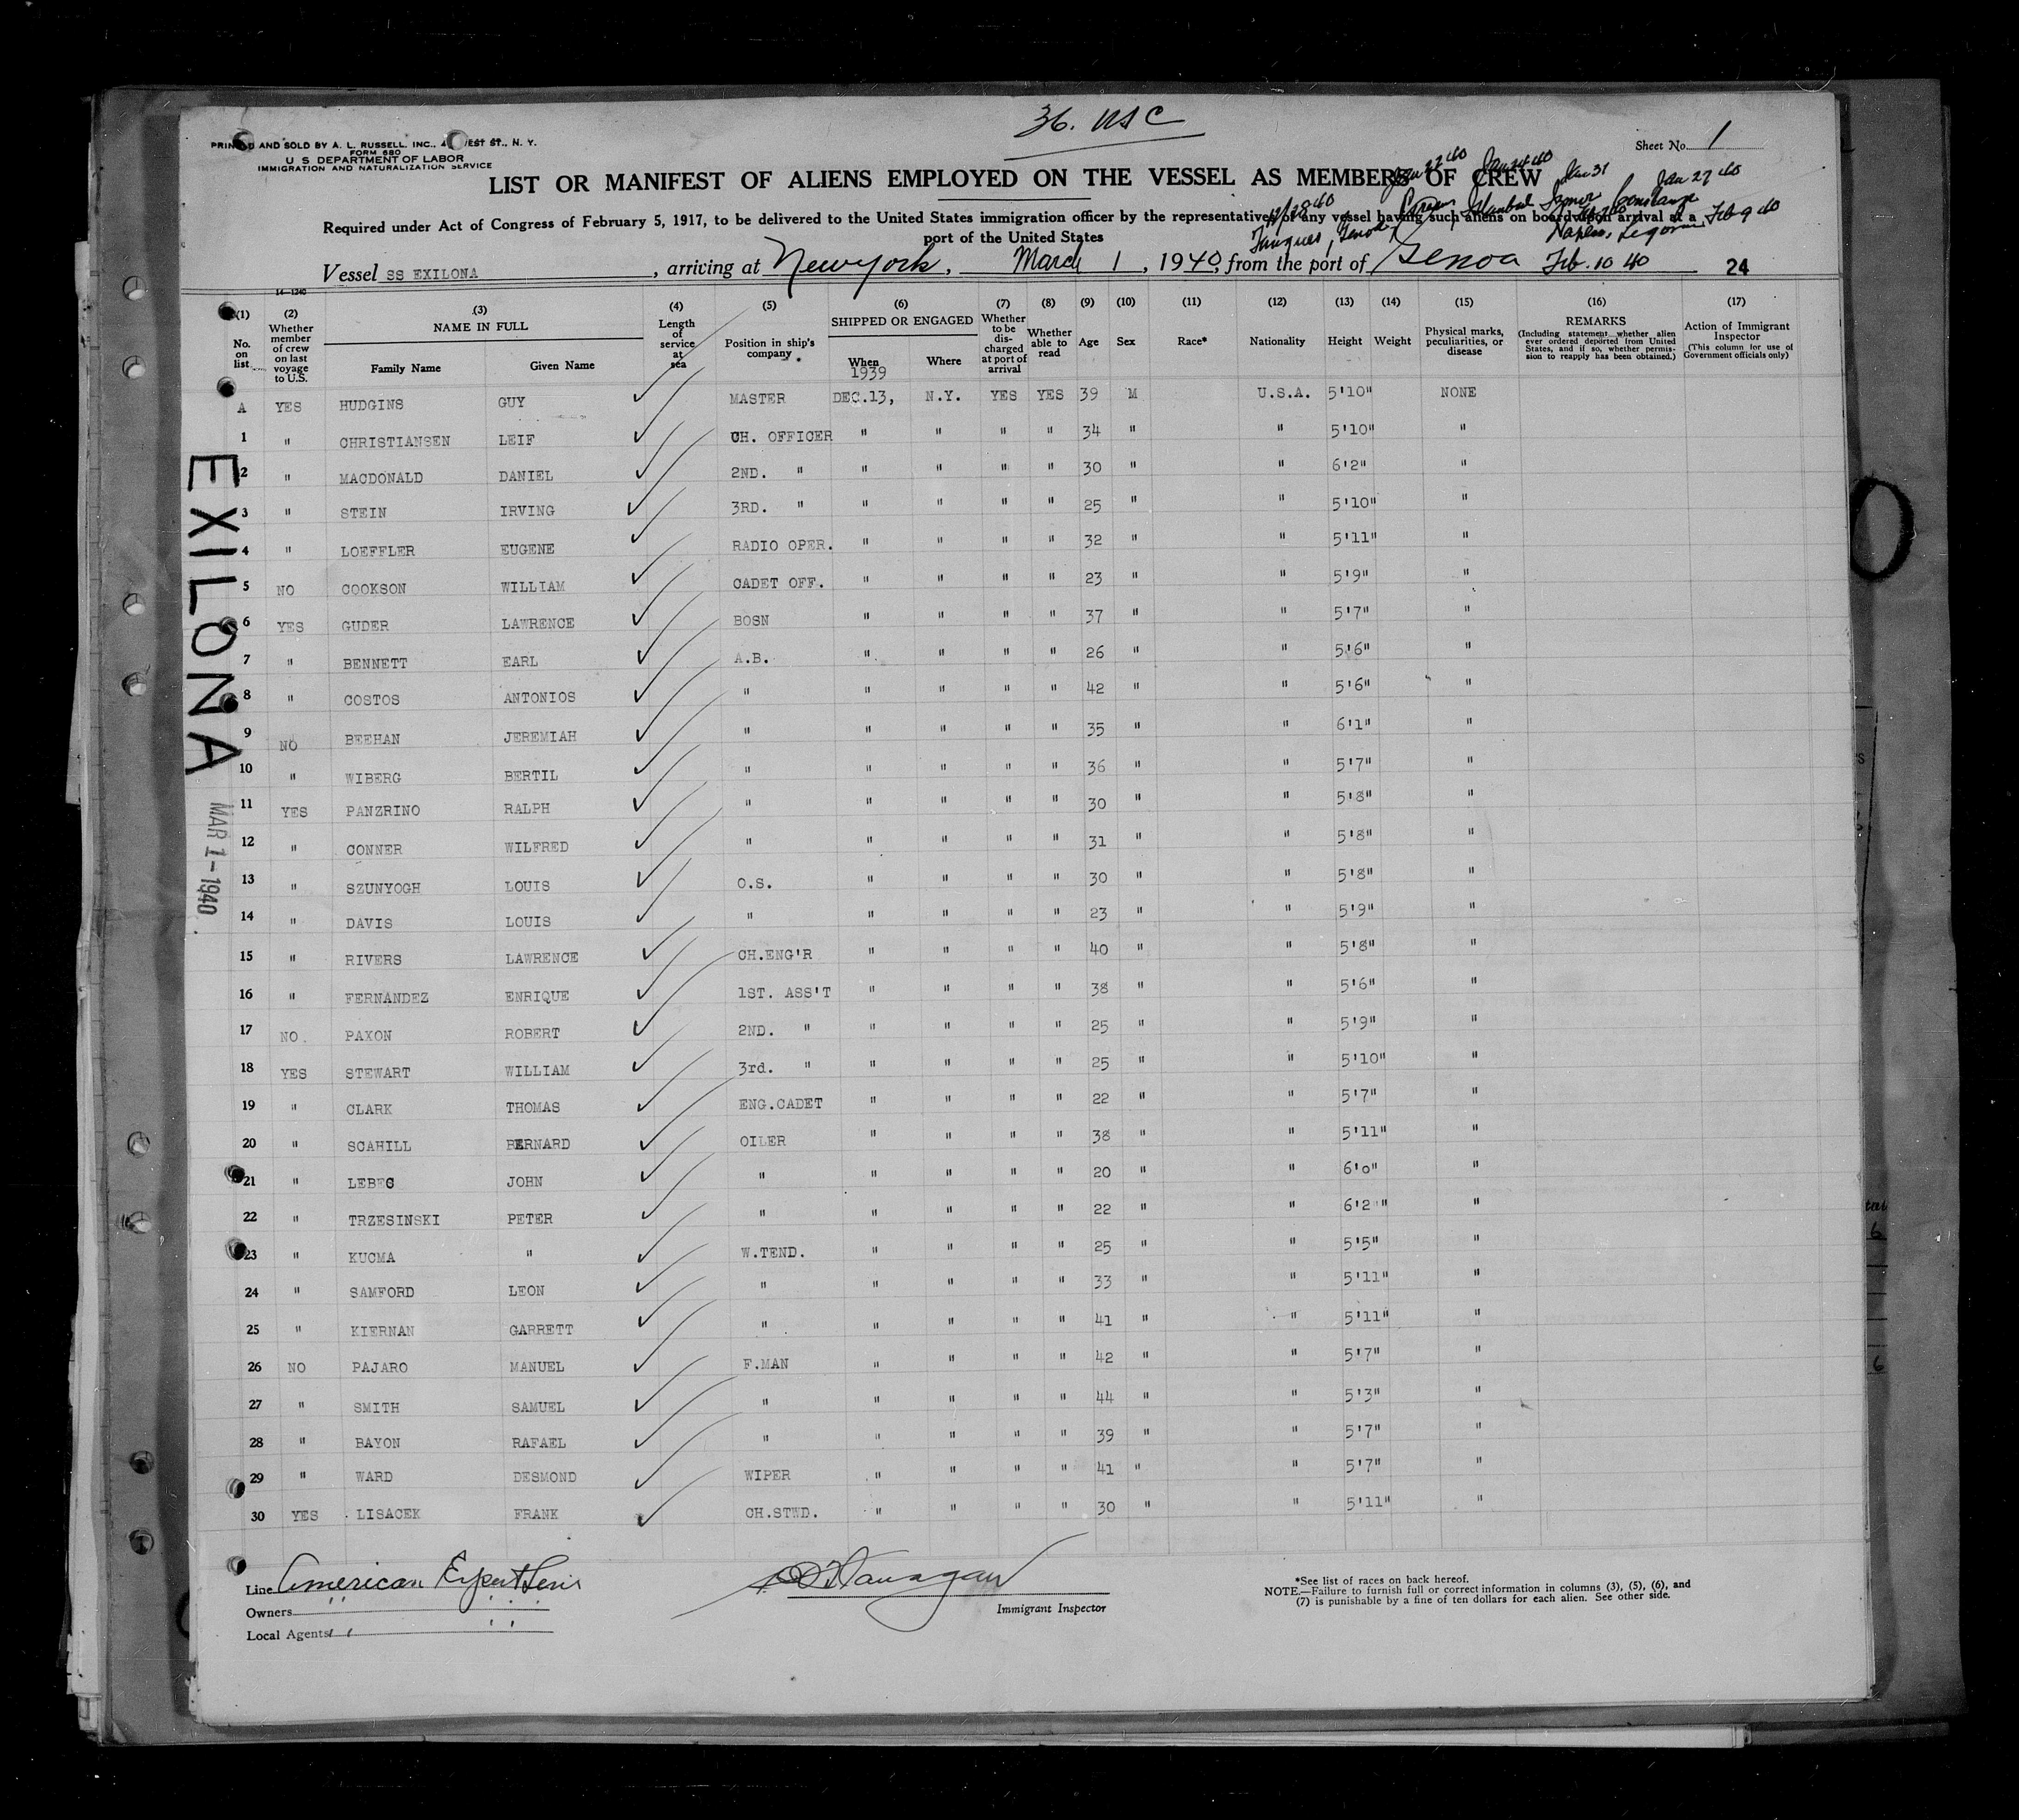 36. USC
PRINTED AND SOLD BY A. L. RUSSELL, INC., WEST ST., N. Y.
FORM 680
U S DEPARTMENT OF LABOR
IMMIGRATION AND NATURALIZATION SERVICE
Sheet No. 1
LIST OR MANIFEST OF ALIENS EMPLOYED ON THE VESSEL AS MEMBERS OF CREW
Jan 31
Jan 27 40
Required under Act of Congress of February 5, 1917, to be delivered to the United States immigration officer by the representatives of any vessel having such aliens on board upon arrival at a
port of the United States
Feb 9 40
Naples, Legorn
Vessel SS EXILONA, arriving at New York, March 1, 1940, from the port of Genoa Feb. 10 40
24
14-1240
(1) No. on list
(2) Whether member of crew on last voyage to U.S.
(3) NAME IN FULL
Family Name Given Name
(4) Length of service at sea
(5) Position in ship's company
(6) SHIPPED OR ENGAGED
When 1939 Where
(7) Whether to be discharged at port of arrival
(8) Whether able to read
(9) Age
(10) Sex
(11) Race*
(12) Nationality
(13) Height
(14) Weight
(15) Physical marks, peculiarities, or disease
(16) REMARKS (Including statement whether alien ever ordered deported from United States, and if so, whether permission to reapply has been obtained.)
(17) Action of Immigrant Inspector (This column for use of Government officials only)
A YES HUDGINS GUY MASTER DEC.13, N.Y. YES YES 39 M U.S.A. 5'10" NONE
1 " CHRISTIANSEN LEIF CH. OFFICER " " " " 34 " " 5'10" "
2 " MACDONALD DANIEL 2ND. " " " " " 30 " " 6'2" "
3 " STEIN IRVING 3RD. " " " " " 25 " " 5'10" "
4 " LOEFFLER EUGENE RADIO OPER. " " " " 32 " " 5'11" "
5 NO COOKSON WILLIAM CADET OFF. " " " " 23 " " 5'9" "
6 YES GUDER LAWRENCE BOSN " " " " 37 " " 5'7" "
7 " BENNETT EARL A.B. " " " " 26 " " 5'6" "
8 " COSTOS ANTONIOS " " " " " 42 " " 5'6" "
9 NO BEEHAN JEREMIAH " " " " " 35 " " 6'1" "
10 " WIBERG BERTIL " " " " " 36 " " 5'7" "
11 YES PANZRINO RALPH " " " " " 30 " " 5'8" "
12 " CONNER WILFRED " " " " " 31 " " 5'8" "
13 " SZUNYOGH LOUIS O.S. " " " " 30 " " 5'8" "
14 " DAVIS LOUIS " " " " " 23 " " 5'9" "
15 " RIVERS LAWRENCE CH.ENG'R " " " " 40 " " 5'8" "
16 " FERNANDEZ ENRIQUE 1ST. ASS'T " " " " 38 " " 5'6" "
17 NO. PAXON ROBERT 2ND. " " " " " 25 " " 5'9" "
18 YES STEWART WILLIAM 3rd. " " " " " 25 " " 5'10" "
19 " CLARK THOMAS ENG.CADET " " " " 22 " " 5'7" "
20 " SCAHILL BERNARD OILER " " " " 38 " " 5'11" "
21 " LEBEG JOHN " " " " " 20 " " 6'0" "
22 " TRZESINSKI PETER " " " " " 22 " " 6'2" "
23 " KUCMA " W.TEND. " " " " 25 " " 5'5" "
24 " SAMFORD LEON " " " " " 33 " " 5'11" "
25 " KIERNAN GARRETT " " " " " 41 " " 5'11" "
26 NO PAJARO MANUEL F.MAN " " " " 42 " " 5'7" "
27 " SMITH SAMUEL " " " " " 44 " " 5'3" "
28 " BAYON RAFAEL " " " " " 39 " " 5'7" "
29 " WARD DESMOND WIPER " " " " 41 " " 5'7" "
30 YES LISACEK FRANK CH.STWD. " " " " 30 " " 5'11" "
EXILONA
MAR 1-1940
Line American Export Lines
Owners " "
Local Agents " "
Immigrant Inspector
*See list of races on back hereof.
NOTE.—Failure to furnish full or correct information in columns (3), (5), (6), and
(7) is punishable by a fine of ten dollars for each alien. See other side.